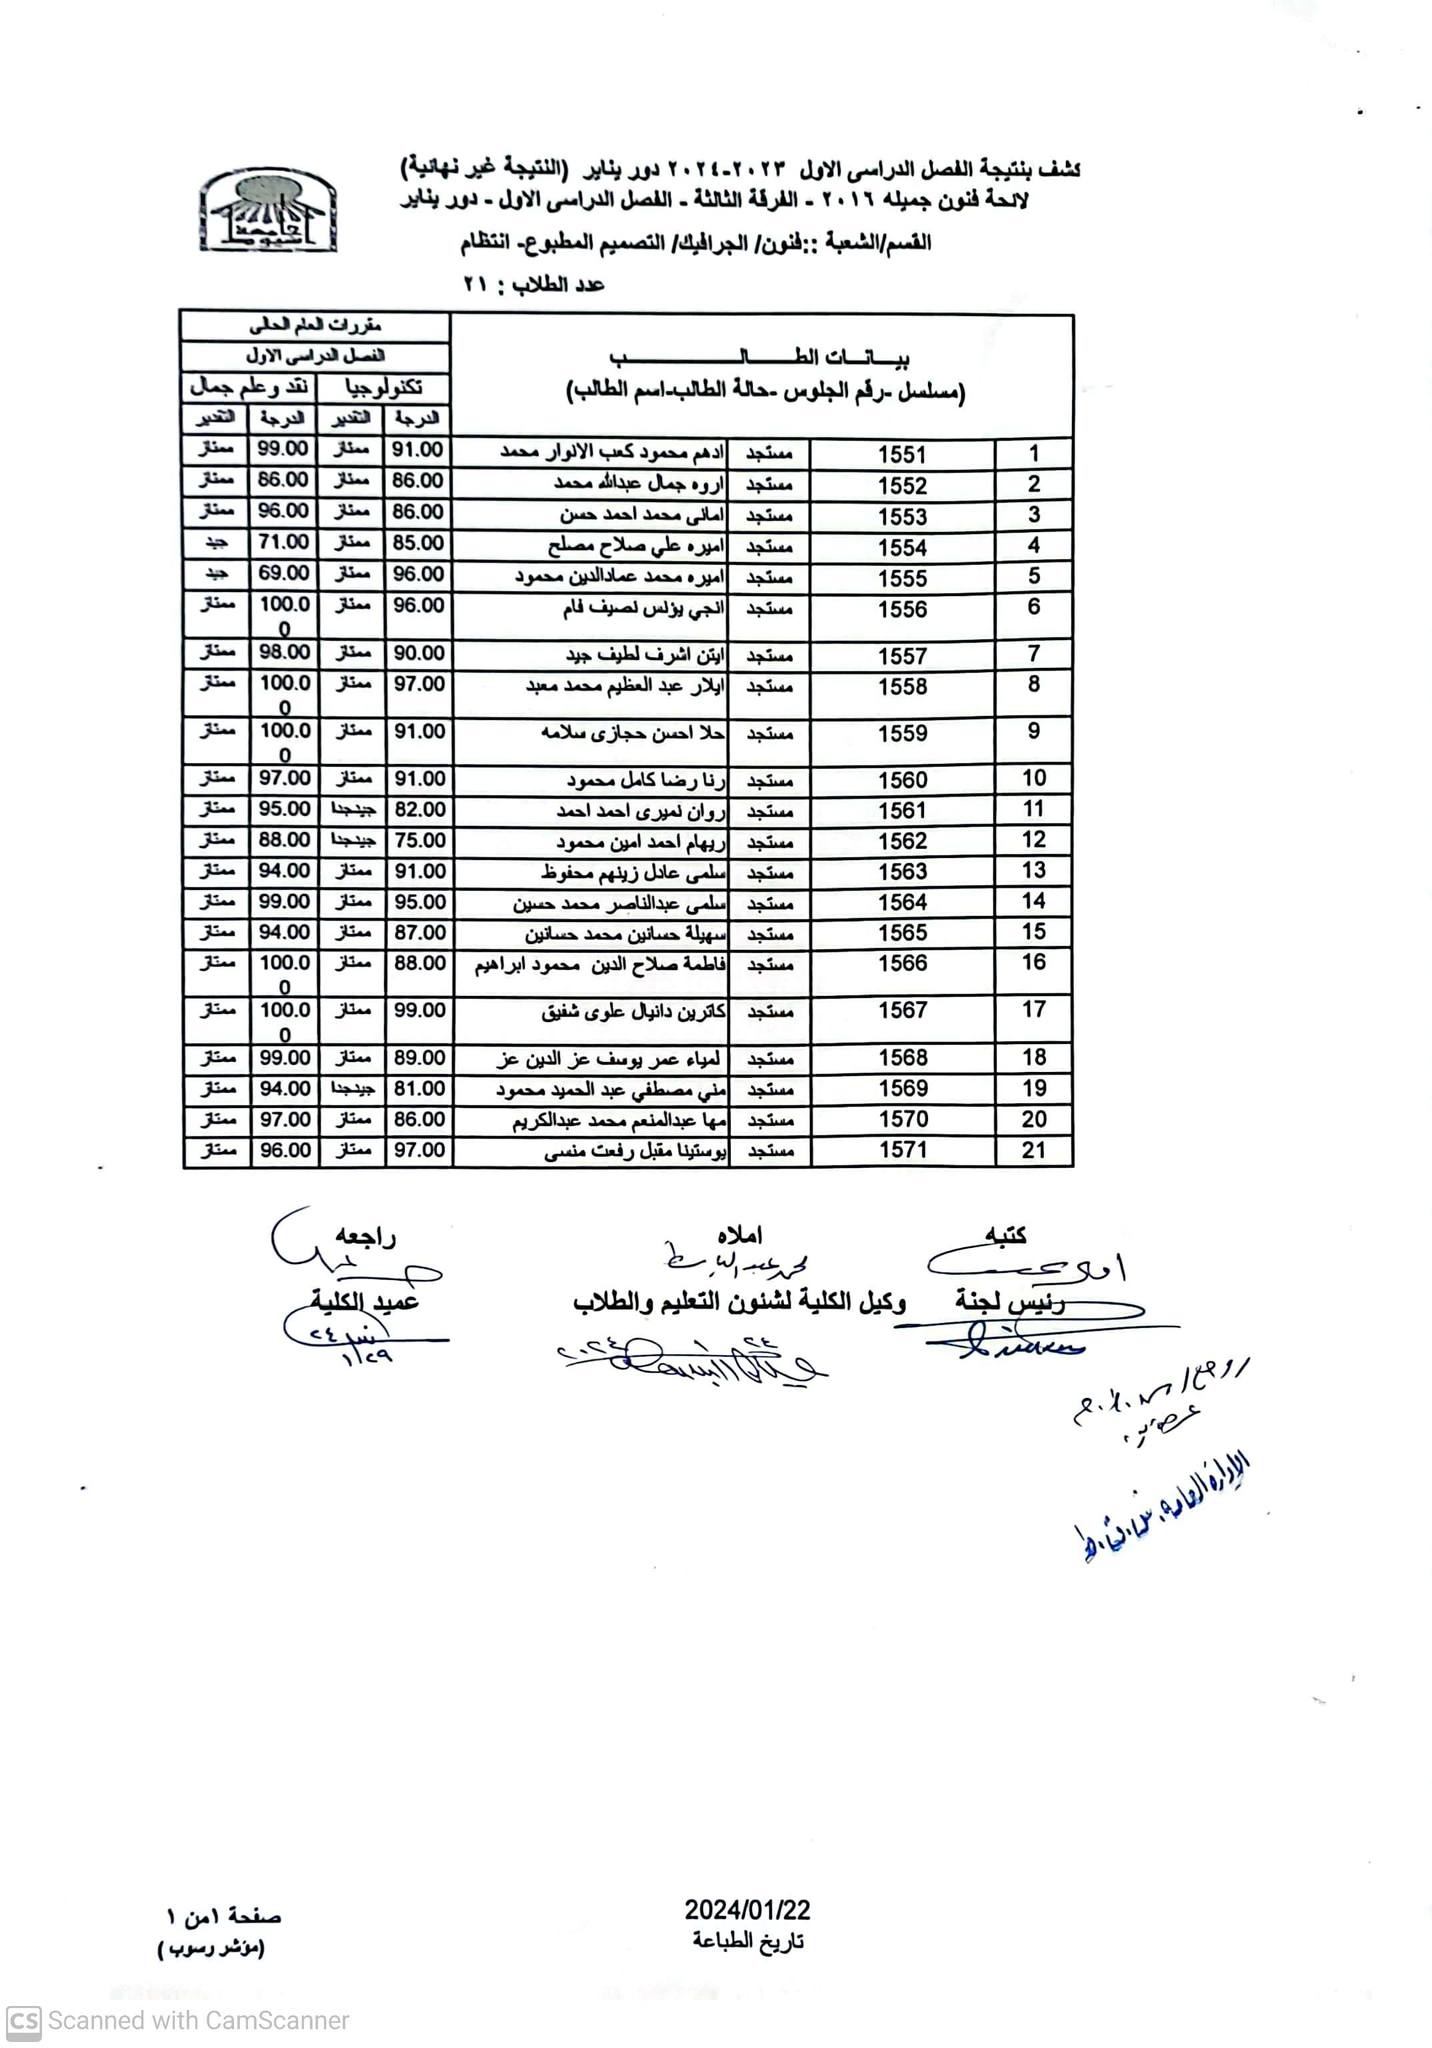 كشف بنتيجة الفصل الدراسى الاول ٢٠٢٣-٢٠٢٤ دور يناير (النتيجة غير نهائية)
لائحة فنون جميله ٢٠١٦ - الفرقة الثالثة - الفصل الدراسى الاول - دور يناير
القسم/الشعبة ::فنون/ الجرافيك/ التصميم المطبوع- انتظام
عدد الطلاب : ٢١
مقررات العام الحالى
بيانات الطالب الفصل الدراسى الاول
(مسلسل -رقم الجلوس -حالة الطالب-اسم الطالب) تكنولوجيا نقد وعلم جمال
الدرجة التقدير الدرجة التقدير
1 1551 مستجد ادهم محمود كعب الانوار محمد 91.00 ممتاز 99.00 ممتاز
2 1552 مستجد اروه جمال عبدالله محمد 86.00 ممتاز 86.00 ممتاز
3 1553 مستجد امانى محمد احمد حسن 86.00 ممتاز 96.00 ممتاز
4 1554 مستجد اميره علي صلاح مصلح 85.00 ممتاز 71.00 جيد
5 1555 مستجد اميره محمد عمادالدين محمود 96.00 ممتاز 69.00 جيد
6 1556 مستجد انجي يؤنس نصيف فام 96.00 ممتاز 100.00 ممتاز
7 1557 مستجد ايتن اشرف لطيف جيد 90.00 ممتاز 98.00 ممتاز
8 1558 مستجد ايلار عبد العظيم محمد معبد 97.00 ممتاز 100.00 ممتاز
9 1559 مستجد حلا احسن حجازى سلامه 91.00 ممتاز 100.00 ممتاز
10 1560 مستجد رنا رضا كامل محمود 91.00 ممتاز 97.00 ممتاز
11 1561 مستجد روان نميرى احمد احمد 82.00 جيدجدا 95.00 ممتاز
12 1562 مستجد ريهام احمد امين محمود 75.00 جيدجدا 88.00 ممتاز
13 1563 مستجد سلمى عادل زينهم محفوظ 91.00 ممتاز 94.00 ممتاز
14 1564 مستجد سلمى عبدالناصر محمد حسين 95.00 ممتاز 99.00 ممتاز
15 1565 مستجد سهيلة حسانين محمد حسانين 87.00 ممتاز 94.00 ممتاز
16 1566 مستجد فاطمة صلاح الدين محمود ابراهيم 88.00 ممتاز 100.00 ممتاز
17 1567 مستجد كاترين دانيال علوى شفيق 99.00 ممتاز 100.00 ممتاز
18 1568 مستجد لمياء عمر يوسف عز الدين عز 89.00 ممتاز 99.00 ممتاز
19 1569 مستجد مني مصطفي عبد الحميد محمود 81.00 جيدجدا 94.00 ممتاز
20 1570 مستجد مها عبدالمنعم محمد عبدالكريم 86.00 ممتاز 97.00 ممتاز
21 1571 مستجد يوستينا مقبل رفعت منسى 97.00 ممتاز 96.00 ممتاز
كتبه املاه راجعه
محمد عبد الباسط
رئيس لجنة وكيل الكلية لشئون التعليم والطلاب عميد الكلية
٢٤ ١ ٢٠٢٤
١/٢٩
الإدارة العامة
2024/01/22
تاريخ الطباعة
صفحة ١من ١
(مؤشر رسوب )
CS Scanned with CamScanner